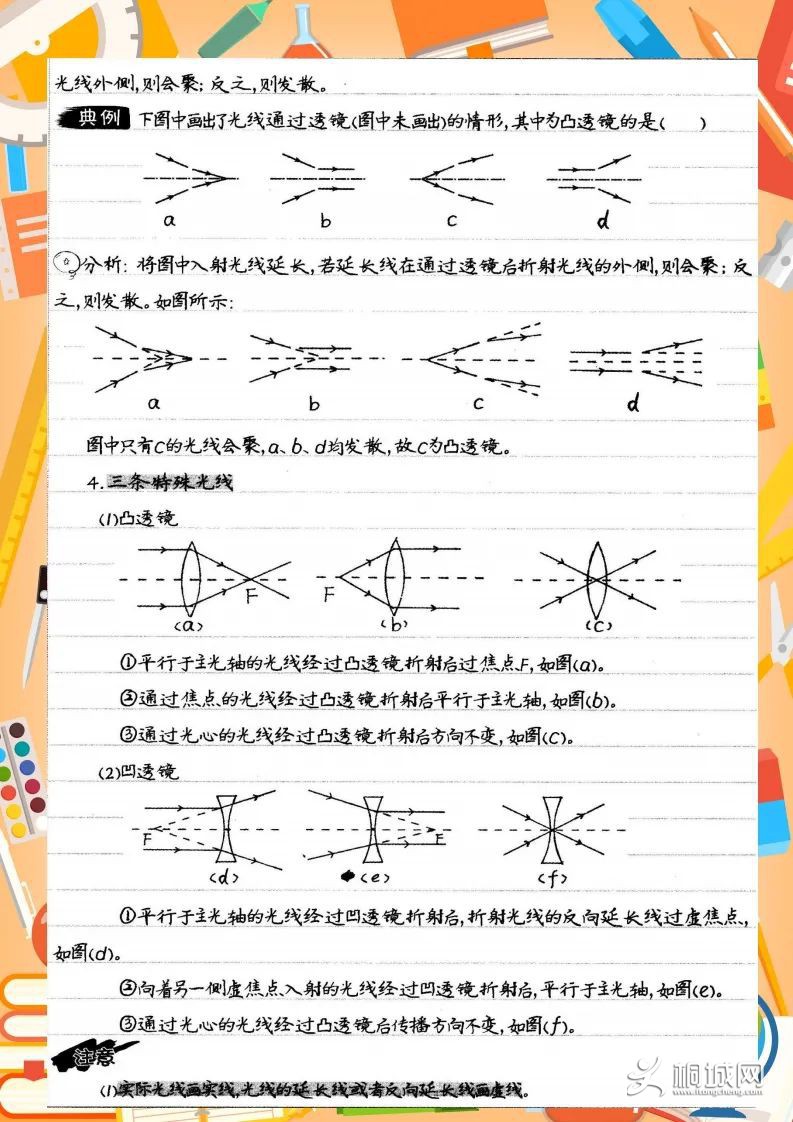 光线外侧,则会聚;反之,则发散。
典例 下图中画出了光线通过透镜(图中未画出)的情形,其中为凸透镜的是( )
a b c d
分析:将图中入射光线延长,若延长线在通过透镜后折射光线的外侧,则会聚;反
之,则发散。如图所示:
a b c d
图中只有C的光线会聚,a、b、d均发散,故C为凸透镜。
4.三条特殊光线
(1)凸透镜
F F
(a) (b) (c)
①平行于主光轴的光线经过凸透镜折射后过焦点F,如图(a)。
②通过焦点的光线经过凸透镜折射后平行于主光轴,如图(b)。
③通过光心的光线经过凸透镜折射后方向不变,如图(c)。
(2)凹透镜
F F
(d) (e) (f)
①平行于主光轴的光线经过凹透镜折射后,折射光线的反向延长线过虚焦点,
如图(d)。
②向着另一侧虚焦点入射的光线经过凹透镜折射后,平行于主光轴,如图(e)。
③通过光心的光线经过凸透镜后传播方向不变,如图(f)。
注意
(1)实际光线画实线,光线的延长线或者反向延长线画虚线。
桐城网
www.itongcheng.com